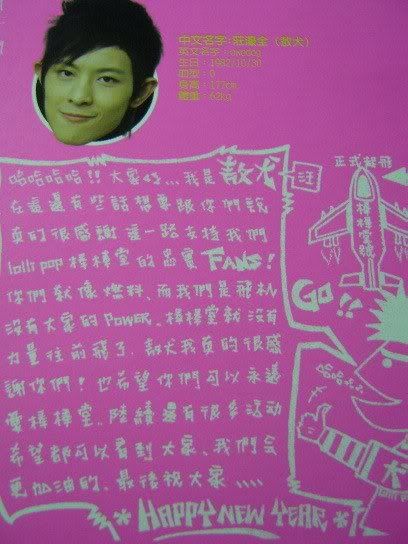 中文名字:莊濠全(敖犬)
英文名字:OWODOG
生日:1982/10/30
血型:O
身高:177cm
體重:62kg
哈哈哈哈!! 大家好... 我是敖犬
在這還有些話想要跟你們說
真的很感謝這一路支持我們
lollipop 棒棒堂的忠實FANS!
你們就像燃料、而我們是飛机
沒有大家的POWER、棒棒堂就沒有
力量往前飛了、敖犬我真的很感
謝你們! 也希望你們可以永遠
愛棒棒堂.. 陸續還有很多活動
希望都可以看到大家、我們会
更加油的、最後祝大家、、、、
*HAPPY NEW YEAR*
汪
正式起飛
棒棒堂號
GO!!
犬